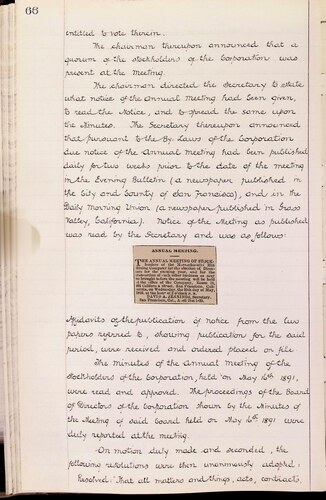 66
entitled to vote therein.
The chairman thereupon announced that a
quorum of the stockholders of the Corporation was
present at the Meeting.
The chairman directed the Secretary to state
what notice of the Annual Meeting had been given,
to read the Notice, and to spread the same upon
the Minutes. The Secretary thereupon announced
that pursuant to the By-Laws of the Corporation
due notice of the Annual meeting had been published
daily for two weeks prior to the date of the meeting
in the Evening Bulletin (a newspaper published in
the City and County of San Francisco), and in the
Daily Morning Union (a newspaper published in Grass
Valley, California). Notice of the Meeting as published
was read by the Secretary and was as follows:
ANNUAL MEETING.
THE ANNUAL MEETING OF STOCK-
holders of the
Company for the election of Direc-
tors for the ensuing year, and for the
Affidavits of the publication of notice from the two
papers referred to, showing publication for the said
period, were received and ordered placed on file.
The minutes of the annual meeting of the
stockholders of the Corporation, held on May 16th 1891,
were read and approved. The proceedings of the Board
of Directors of the Corporation shown by the Minutes of
the Meeting of said board held on May 16th 1891 were
duly reported at the meeting.
On motion duly made and seconded, the
following resolutions were then unanimously adopted:
Resolved: That all matters and things, acts, contracts,